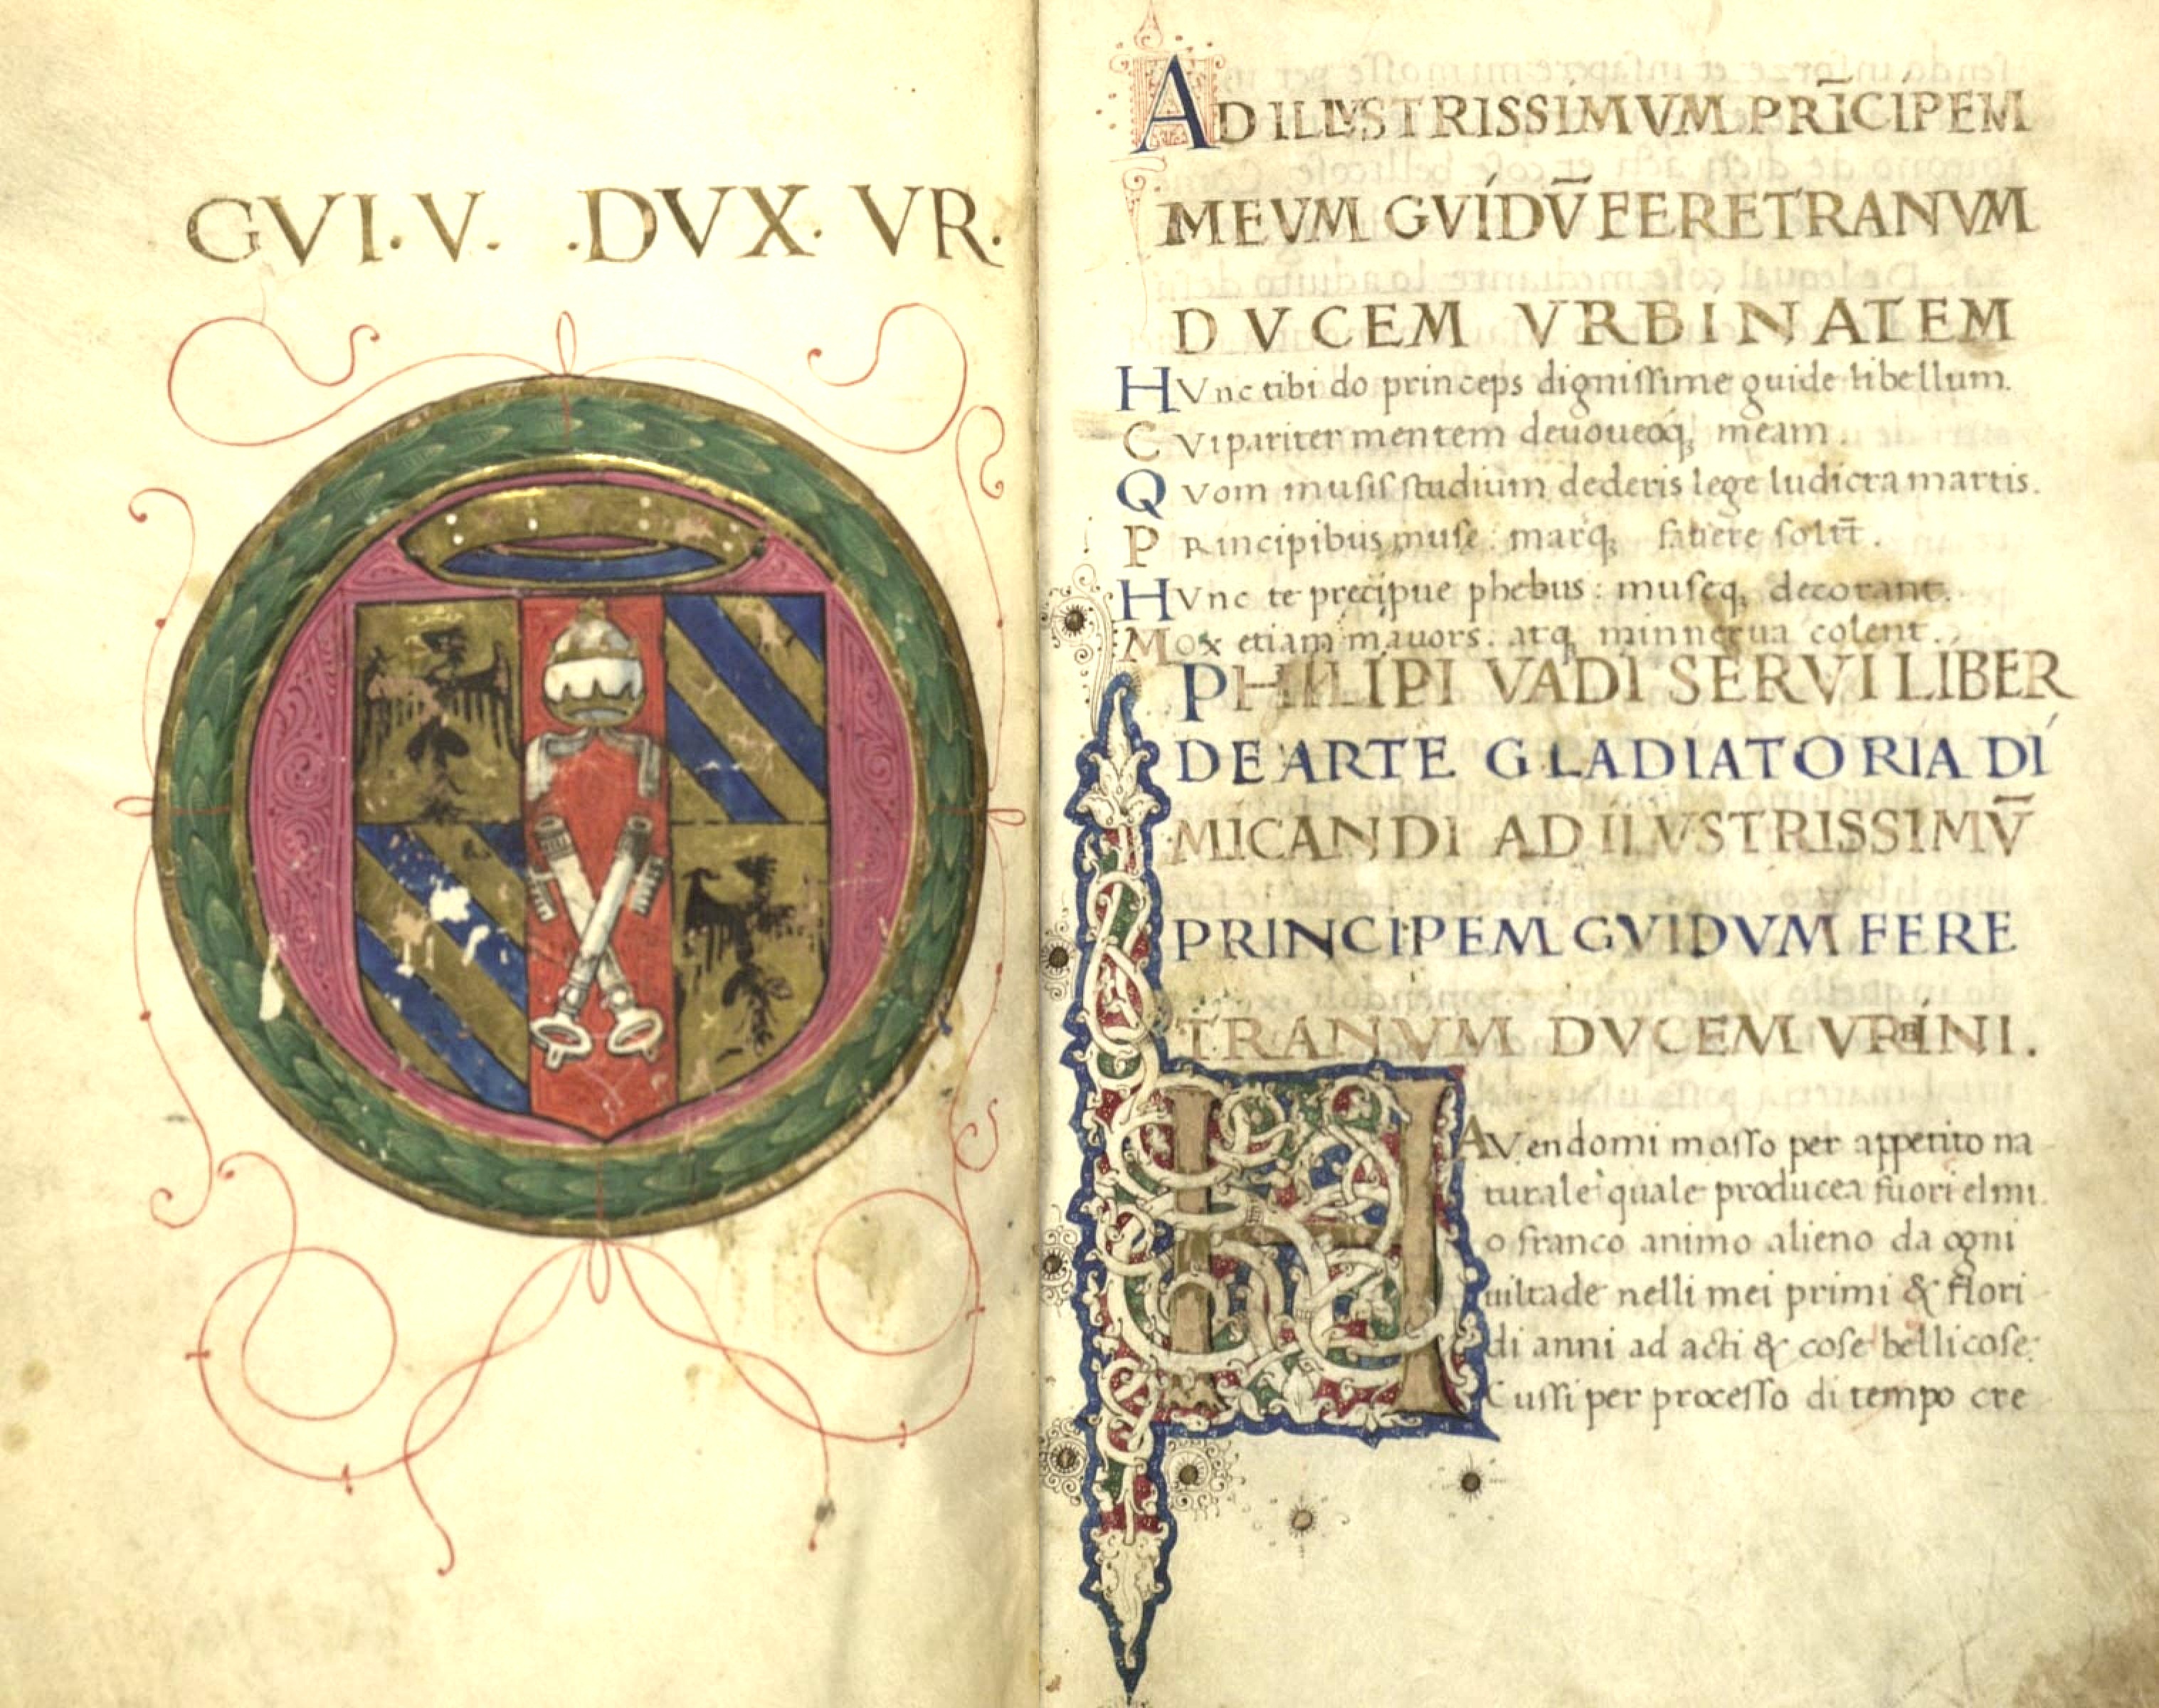 GVI. V. .DVX. VR.
AD ILLVSTRISSIMVM PRĪCIPEM
MEVM GVIDV̄ FERETRANVM
DVCEM VRBINATEM
HVnc tibi do princeps dignissime guide libellum.
CVi pariter mentem deuoueoq; meam.
QVom musis studium dederis lege ludicra martis.
PRincipibus muse: marq; fauere solēt.
HVnc te precipue phebus: museq; decorant.
MOx etiam mauors. atq; minnerua colent.
PHILIPI VADI SERVI LIBER
DE ARTE GLADIATORIA DI
MICANDI AD ILVSTRISSIMV̄
PRINCIPEM GVIDVM FERE
TRANVM DVCEM VRBINI.
HAVendomi mosso per appetito na
turale quale producea fuori el mi
o franco animo alieno da ogni
uiltade nelli mei primi & flori
di anni ad acti & cose bellicose:
Cussi per processo di tempo cre